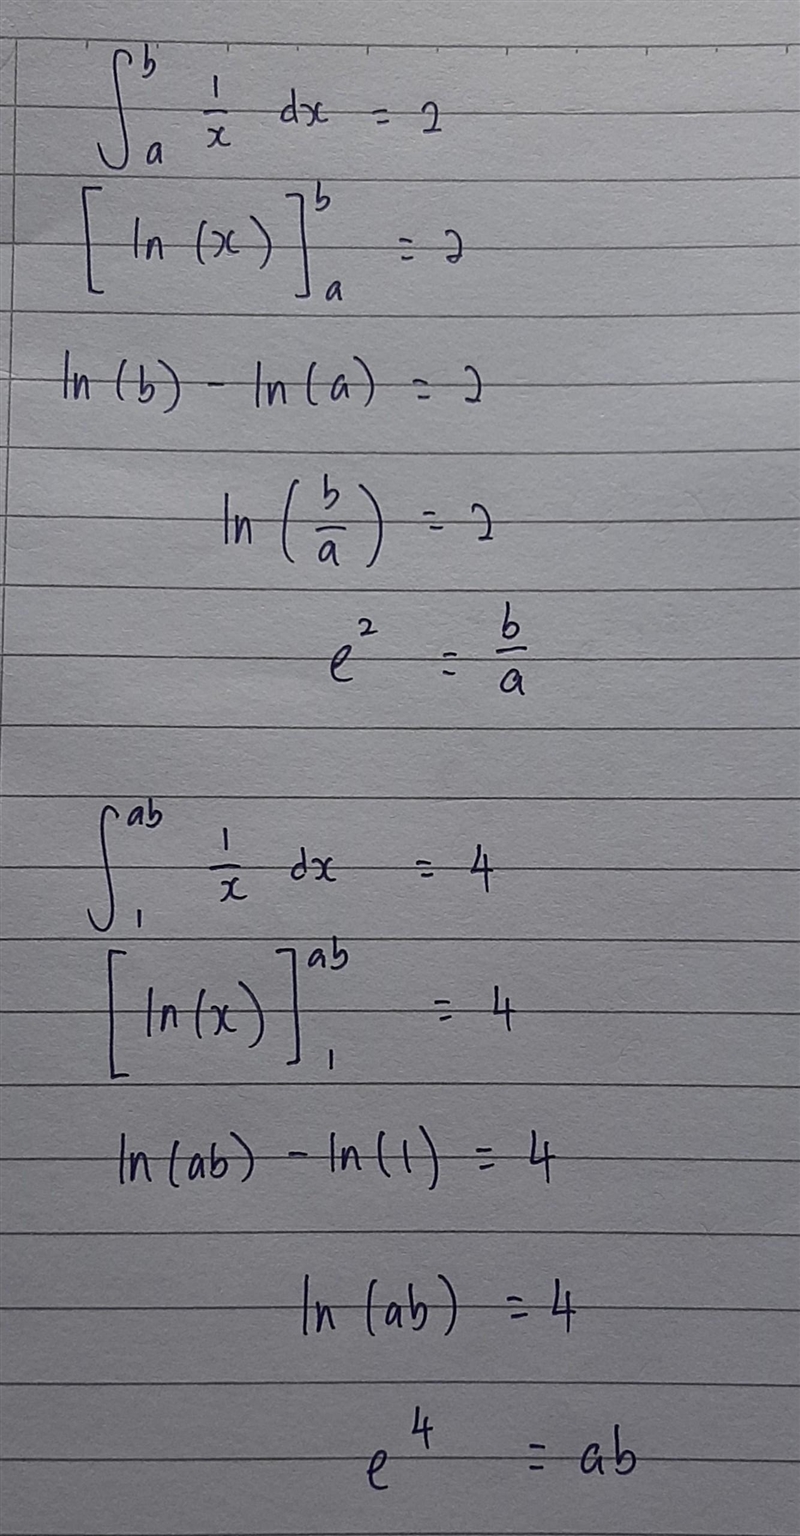 ∫_a^b 1/x dx = 2
[ln(x)]_a^b = 2
ln(b) - ln(a) = 2
ln(b/a) = 2
e^2 = b/a
∫_1^ab 1/x dx = 4
[ln(x)]_1^ab = 4
ln(ab) - ln(1) = 4
ln(ab) = 4
e^4 = ab